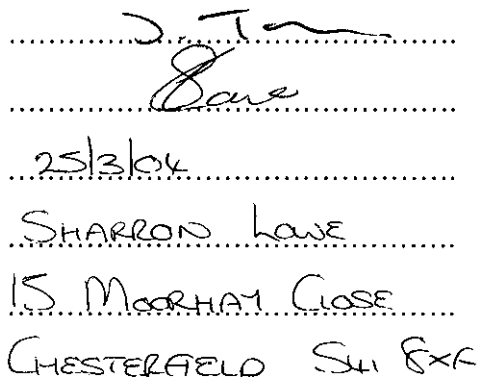 25/3/04
SHARRON LOWE
15 MOORHAY CLOSE
CHESTERFIELD S41